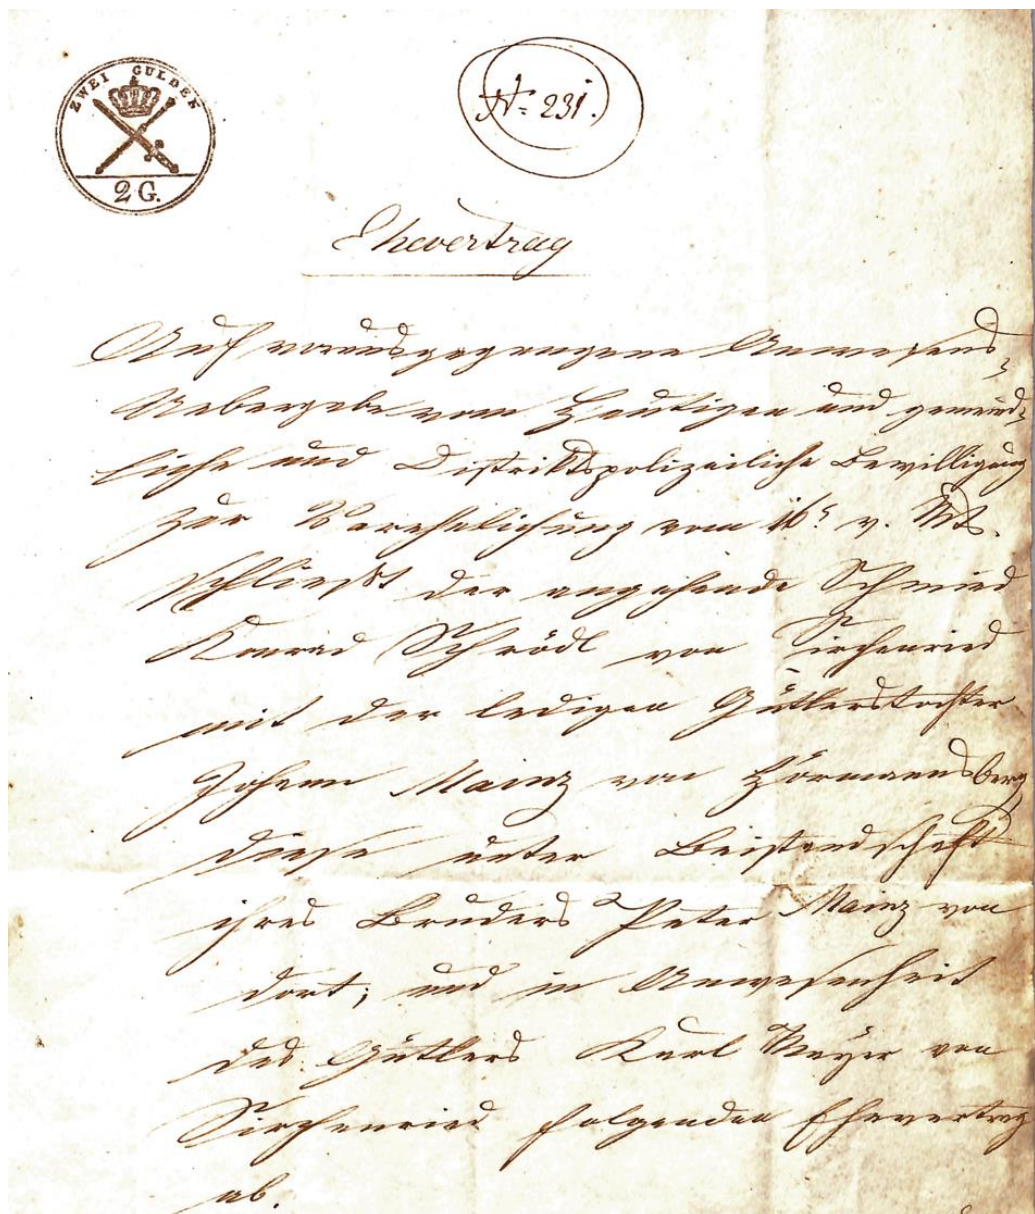 ZWEI GULDEN
2 G.
No: 231.
Ehevertrag
Auf vorausgegangene Anwesens,
Uebergabe vom Heutigen und gemeind,
liche und Distriktspolizeiliche Bewilligung
zur Verehelichung vom 16t v. Mts.
schließt der angehende Schmied
Konrad Schrödl von Sirchenried
mit der ledigen Gütlerstochter
Johann Mainz von Hörmannsberg
diese unter Beistandschaft
ihres Bruders Peter Mainz von
dort, und in Anwesenheit
des Gütlers Karl Mayer von
Sirchenried folgenden Ehevertrag
ab.